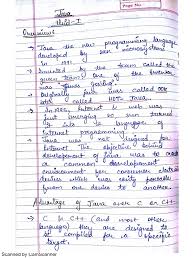 Page No.
Java
Unit-I
Overview:
→ Java the new programming language
developed by Sun
in 1991.
→ Invented by the team called the
green team. one of the
was James Gosling.
→ Originally Java was called
called
→ In Internet and web was
just emerging so Sun turned
language
Internet programming.
→ Java was not designed for
Internet. The objective behind
development of Java was to
a common development
environment for consumer electronic
devices which was easily portable
from one device to another
Advantage of Java over C or C++
→ C or C++ (and most other
languages) they are designed to
be compiled for a specific
target.
Scanned by CamScanner